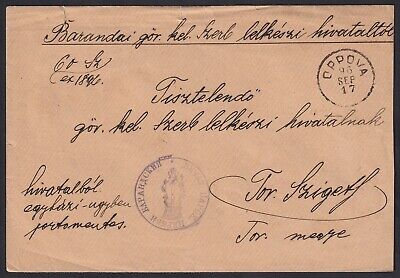 Barandai gör. kel. Szerb lelkészi hivataltól
60 Sz
ex 1896.
OPPOVA
96
SEP
17
Tisztelendő
gör. kel. Szerb lelkészi hivatalnak
Tor. Szigeth
Tor. megye
hivatalból
egyházi-ügyben
portomentes.